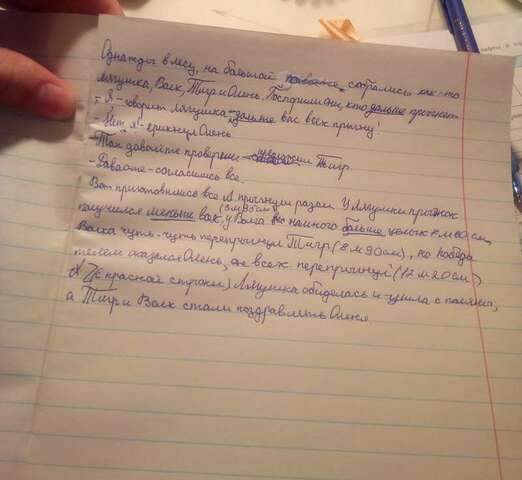 Однажды в лесу, на большой поляне, собрались как-то
лягушка, Волк, Тигр и Олень. Поспорили они, кто дальше прыгнет.
- Я - говорит лягушка - дальше вас всех прыгну!
- Нет я - крикнул Олень.
- Так давайте проверим - предложил Тигр.
- Давайте - согласились все.
Вот приготовились все и прыгнули разом. У Лягушки прыжок
получился меньше всех, (3м 95см) у Волка намного больше целых 8м 60см,
Волка чуть-чуть перепрыгнул Тигр (8м 90см), но победи
телем оказался Олень, он всех перепрыгнул (12м 20см)
(с красной строки) Лягушка обиделась и ушла с поляны,
а Тигр и Волк стали поздравлять Оленя.